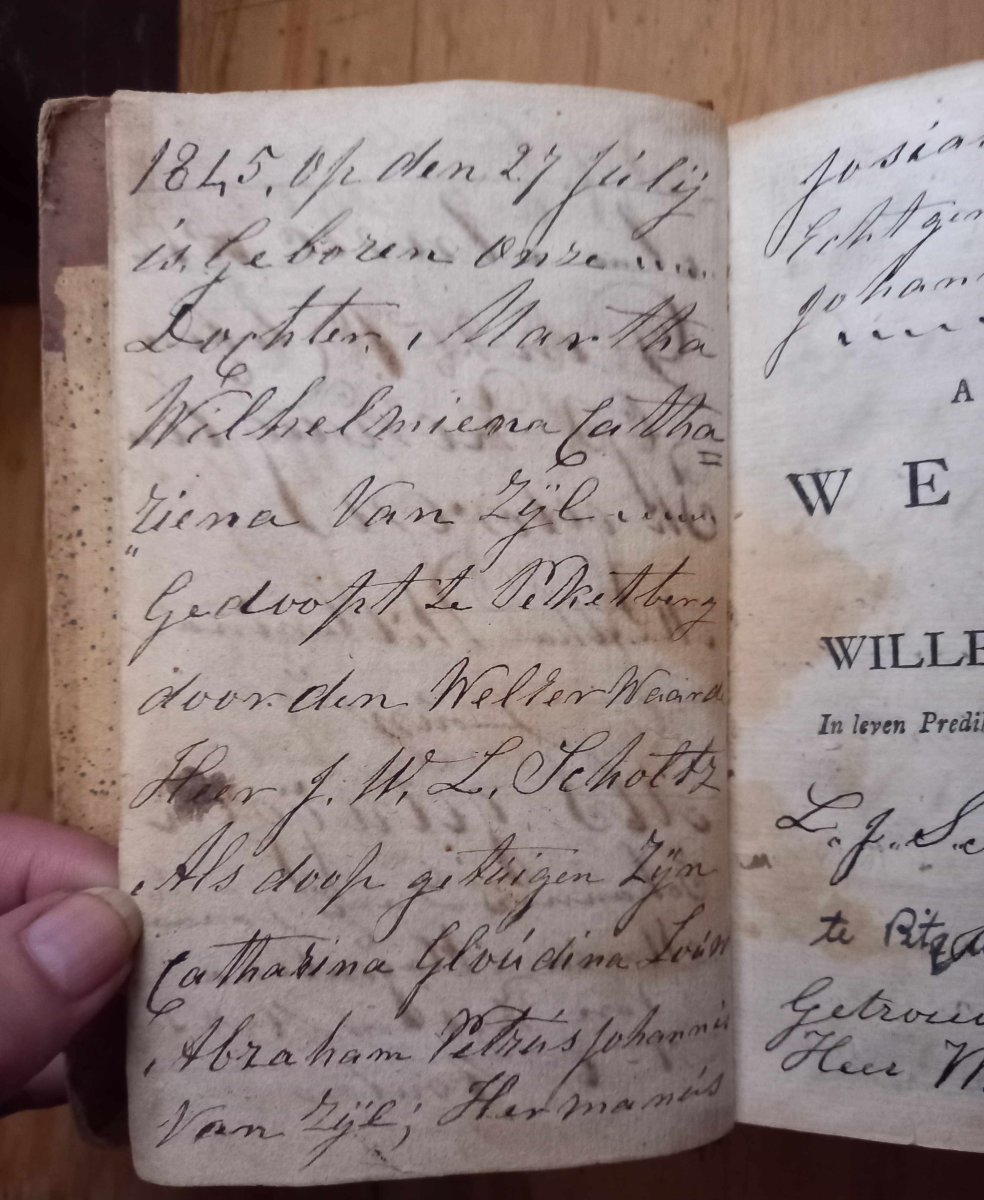 1845. Op den 27 Júlÿ
is Geboren Onze
Dochter, Martha
Wilhelmiena Catha=
"riena Van Zÿl
Gedoopt te Piketberg
door den Wel Eer Waarde
Heer J. W. L. Scholtz
Als doop getúigen Zÿn
Catharina Gloúdina Loúw
Abraham Petrús Johannis
Van Zÿl; Hermanús
Josia
Echtgen
Johan
A
WE
WILLE
In leven Predi
L. J. S
te
Getrouw
Heer